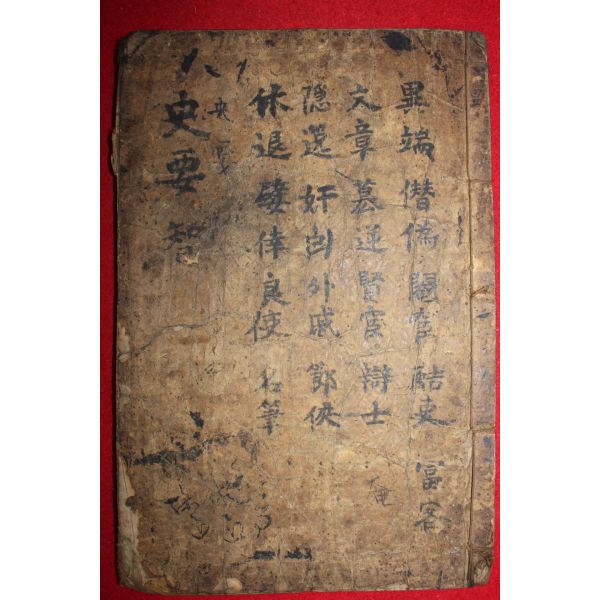 異端 僭偽 閹宦 酷吏 富客
文章 篡逆 賢宦 辯士
隠逸 奸凶 外戚 節俠
休退 嬖倖 良使 名筆
史要 智